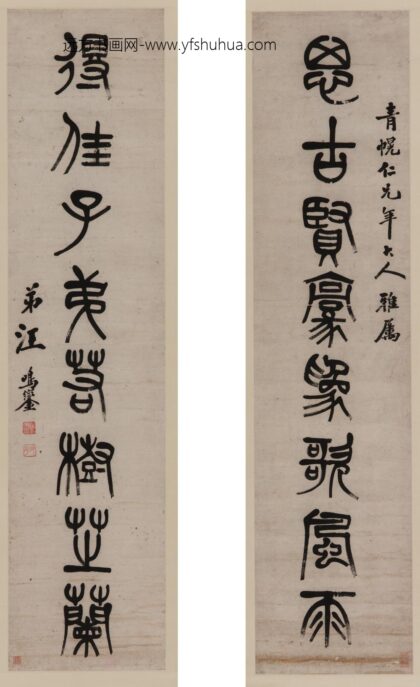 远方书画网-www.yfshuhua.com
青幌仁兄年大人雅屬
思古賢豪爲歌風雨
得佳子弟若樹芝蘭
弟汪鳴鑾